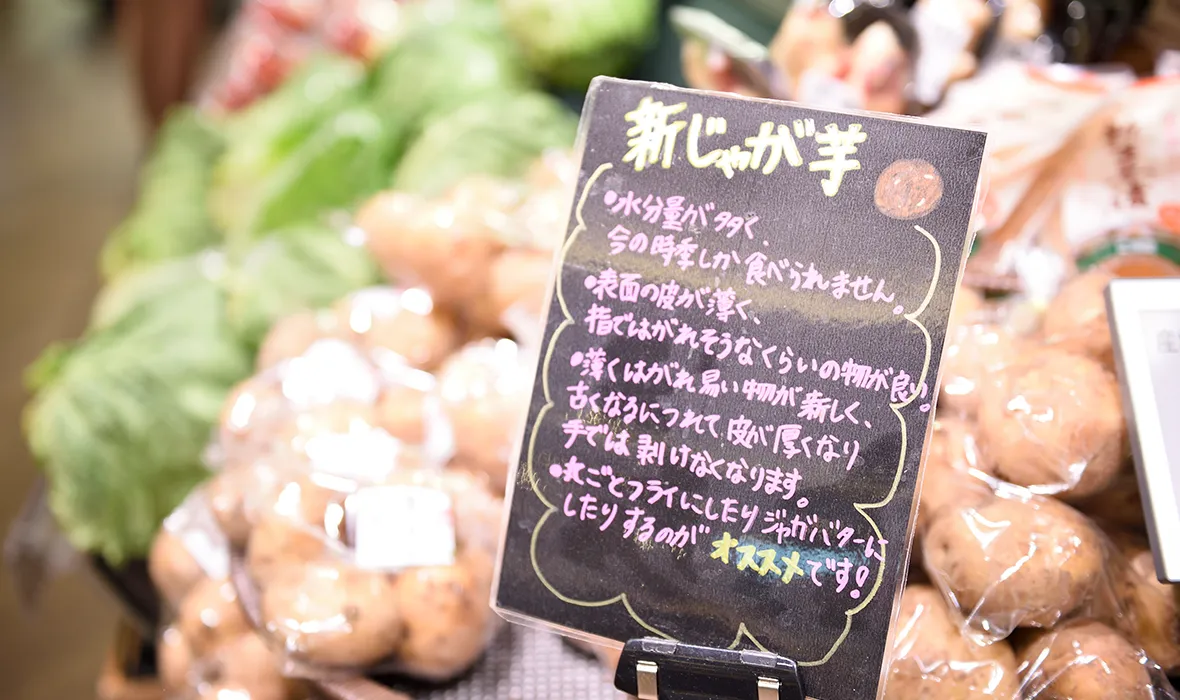 新じゃが芋
•水分量が多く、
今の時季しか食べられません。
•表面の皮が薄く、
指ではがれそうなくらいの物が良い。
•薄くはがれ易い物が新しく、
古くなるにつれて皮が厚くなり
手では剥けなくなります。
•丸ごとフライにしたりジャガバターに
したりするのがオススメです!